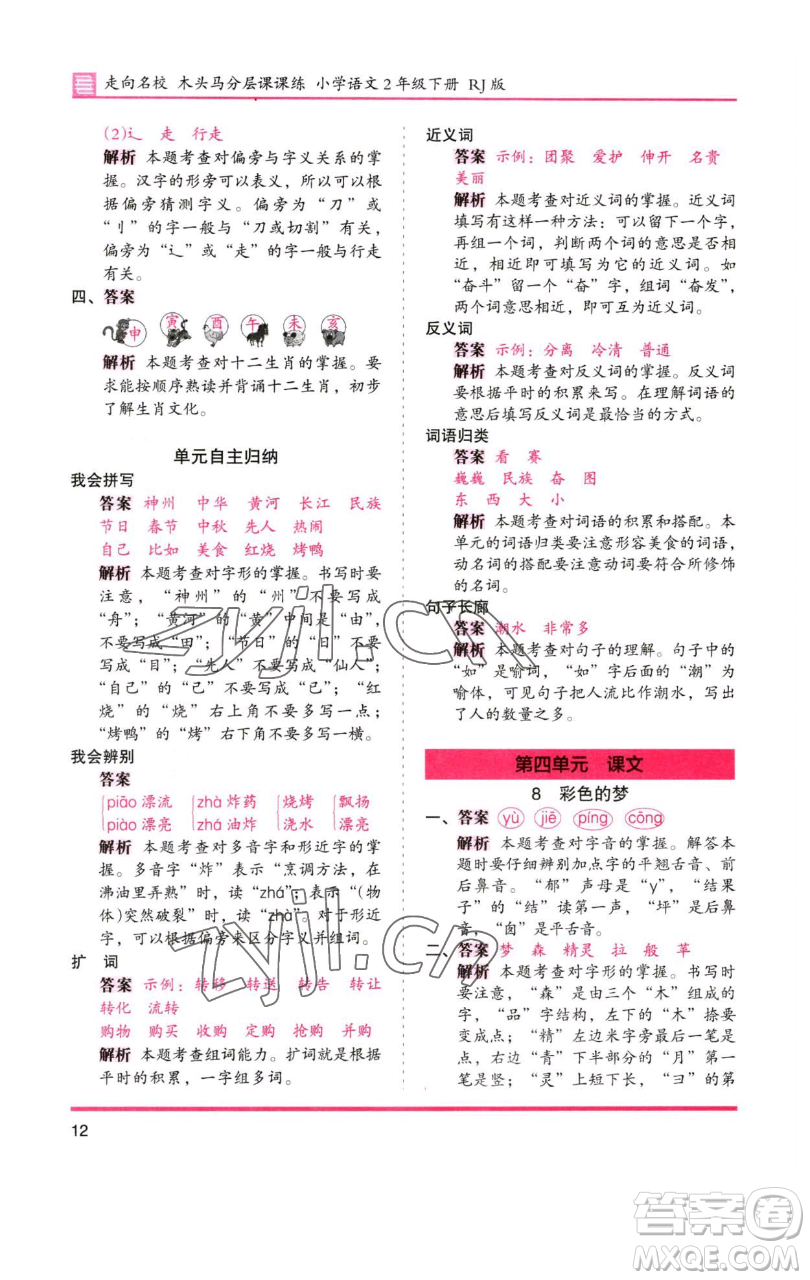 走向名校 木头马分层课课练 小学语文2年级下册 RJ版
(2)辶 走 行走
解析 本题考查对偏旁与字义关系的掌
握。汉字的形旁可以表义，所以可以根
据偏旁猜测字义。偏旁为“刀”或
“刂”的字一般与“刀或切割”有关，
偏旁为“辶”或“走”的字一般与行走
有关。
四、答案
申 寅 酉 午 未 亥
解析 本题考查对十二生肖的掌握。要
求能按顺序熟读并背诵十二生肖，初步
了解生肖文化。
单元自主归纳
我会拼写
答案 神州 中华 黄河 长江 民族
节日 春节 中秋 先人 热闹
自己 比如 美食 红烧 烤鸭
解析 本题考查对字形的掌握。书写时要
注意，“神州”的“州”不要写成
“舟”；“黄河”的“黄”中间是“由”，
不要写成“田”；“节日”的“日”不要
写成“目”；“先人”不要写成“仙人”；
“自己”的“己”不要写成“已”；“红
烧”的“烧”右上角不要多写一点；
“烤鸭”的“烤”右下角不要多写一横。
我会辨别
答案
piāo 漂流 zhà 炸药 烧烤 飘扬
piào 漂亮 zhá 油炸 浇水 漂亮
解析 本题考查对多音字和形近字的掌
握。多音字“炸”表示“烹调方法，在
沸油里弄熟”时，读“zhá”；表示“(物
体)突然破裂”时，读“zhà”。对于形近
字，可以根据偏旁来区分字义并组词。
扩 词
答案 示例：转移 转送 转告 转让
转化 流转
购物 购买 收购 定购 抢购 并购
解析 本题考查组词能力。扩词就是根据
平时的积累，一字组多词。
近义词
答案 示例：团聚 爱护 伸开 名贵
美丽
解析 本题考查对近义词的掌握。近义词
填写有这样一种方法：可以留一个字，
再组一个词，判断两个词的意思是否相
近，相近即可填写为它的近义词。如
“奋斗”留一个“奋”字，组词“奋发”，
两个词意思相近，即可互为近义词。
反义词
答案 示例：分离 冷清 普通
解析 本题考查对反义词的掌握。反义词
要根据平时的积累来写。在理解词语的
意思后填写反义词是最恰当的方式。
词语归类
答案 看 赛
巍巍 民族 奋 图
东 西 大 小
解析 本题考查对词语的积累和搭配。本
单元的词语归类要注意形容美食的词语，
动名词的搭配要注意动词要符合所修饰
的名词。
句子长廊
答案 潮水 非常多
解析 本题考查对句子的理解。句子中的
“如”是喻词，“如”字后面的“潮”为
喻体，可见句子把人流比作潮水，写出
了人的数量之多。
第四单元 课文
8 彩色的梦
一、答案 yù jiē píng cōng
解析 本题考查对字音的掌握。解答本
题时要仔细辨别加点字的平翘舌音、前
后鼻音。“郁”声母是“y”，“结果
子”的“结”读第一声，“坪”是后鼻
音，“囱”是平舌音。
二、答案 梦 森 精灵 拉 般 苹
解析 本题考查对字形的掌握。书写时
要注意，“森”是三个“木”组成的
字，“品”字结构，下左的“木”捺要
变成点；“精”左边米字旁最后一笔是
点，右边“青”下半部分的“月”第一
笔是竖；“灵”上短下长，“彐”的第
12
zyjl.cn
zyjl.cn
答案圈
MXQE.COM